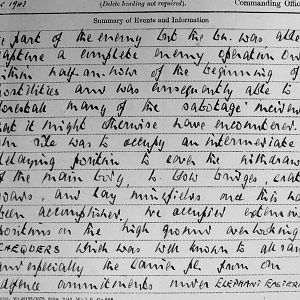 1943 (Delete heading not required). Commanding Officer
Summary of Events and Information
part of the enemy but the bn. was able
capture a complete enemy operation order
within half-an-hour of the beginning of
hostilities and was consequently able to
forestall many of the sabotage
that it might otherwise have encountered.
role was to occupy an intermediate
delaying position to cover the withdrawal
of the main body, to blow bridges, crater
roads, and lay minefields once this had
been accomplished. We occupied extensive
positions on the high ground overlooking
CHEQUERS which was well known to all ranks
and especially the Carrier pl. from our
defence commitments under ELEPHANT EASTER